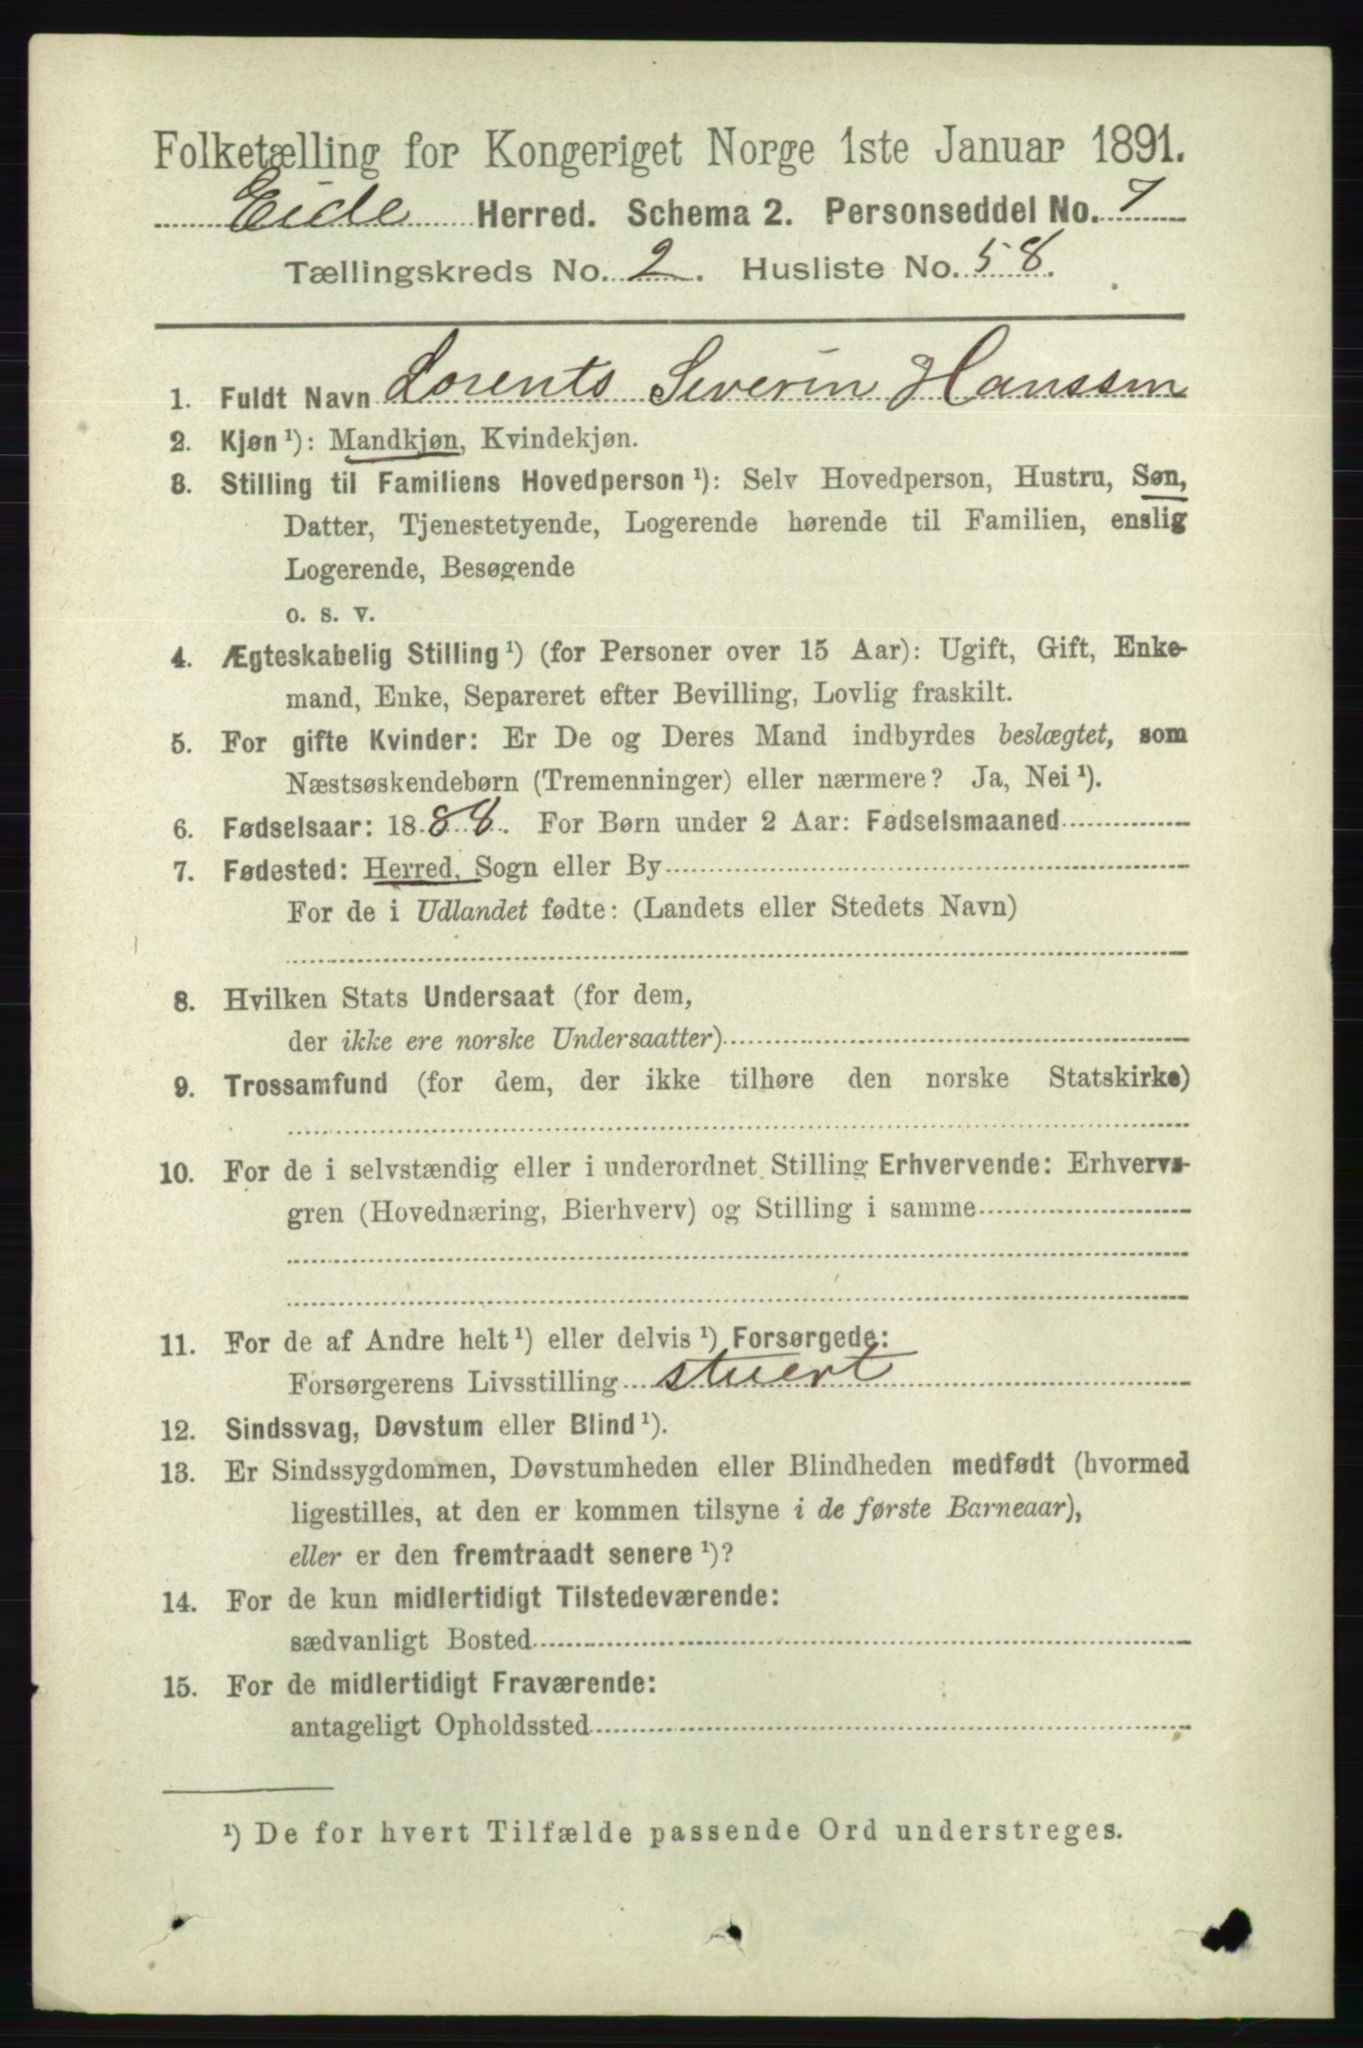 Folketælling for Kongeriget Norge 1ste Januar 1891.
Eide Herred. Schema 2. Personseddel No. 7
Tællingskreds No. 2. Husliste No. 58.
1. Fuldt Navn Lorents Severin Hanssen
2. Kjøn ¹): Mandkjøn, Kvindekjøn.
3. Stilling til Familiens Hovedperson ¹): Selv Hovedperson, Hustru, Søn,
Datter, Tjenestetyende, Logerende hørende til Familien, enslig
Logerende, Besøgende
o. s. v.
4. Ægteskabelig Stilling ¹) (for Personer over 15 Aar): Ugift, Gift, Enke-
mand, Enke, Separeret efter Bevilling, Lovlig fraskilt.
5. For gifte Kvinder: Er De og Deres Mand indbyrdes beslægtet, som
Næstsøskendebørn (Tremenninger) eller nærmere? Ja, Nei ¹).
6. Fødselsaar: 1888. For Børn under 2 Aar: Fødselsmaaned
7. Fødested: Herred, Sogn eller By
For de i Udlandet fødte: (Landets eller Stedets Navn)
8. Hvilken Stats Undersaat (for dem,
der ikke ere norske Undersaatter)
9. Trossamfund (for dem, der ikke tilhøre den norske Statskirke)
10. For de i selvstændig eller i underordnet Stilling Erhvervende: Erhvervs-
gren (Hovednæring, Bierhverv) og Stilling i samme
11. For de af Andre helt ¹) eller delvis ¹) Forsørgede:
Forsørgerens Livsstilling stuert
12. Sindssvag, Døvstum eller Blind ¹).
13. Er Sindssygdommen, Døvstumheden eller Blindheden medfødt (hvormed
ligestilles, at den er kommen tilsyne i de første Barneaar),
eller er den fremtraadt senere ¹)?
14. For de kun midlertidigt Tilstedeværende:
sædvanligt Bosted
15. For de midlertidigt Fraværende:
antageligt Opholdssted
¹) De for hvert Tilfælde passende Ord understreges.